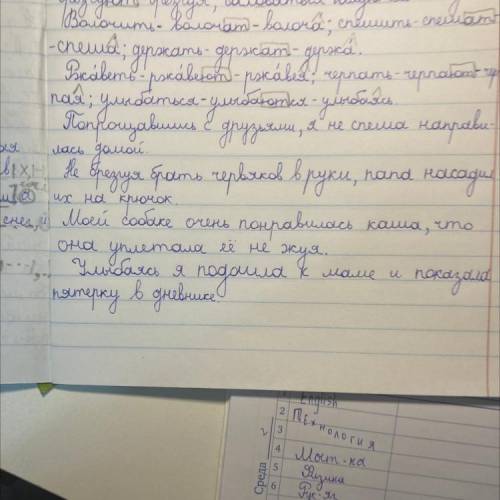 Волочить-волочат-волоча; спешить-спешат-
-спеша; держать-держат-держа.
Ржаветь-ржавеют-ржавея; черпать-черпают-чер
пая; улыбаться-улыбаются-улыбаясь.
Попрощавшись с друзьями, я не спеша направи-
лась домой.
Не брезгуя брать червяков в руки, папа насадил
их на крючок.
Моей собаке очень понравилась каша, что
она уплетала её не жуя.
Улыбаясь я подошла к маме и показала
пятерку в дневнике.
English
2 Технология
3
4 Мат-ка
5 Физика
6 Рус-яз
Среда